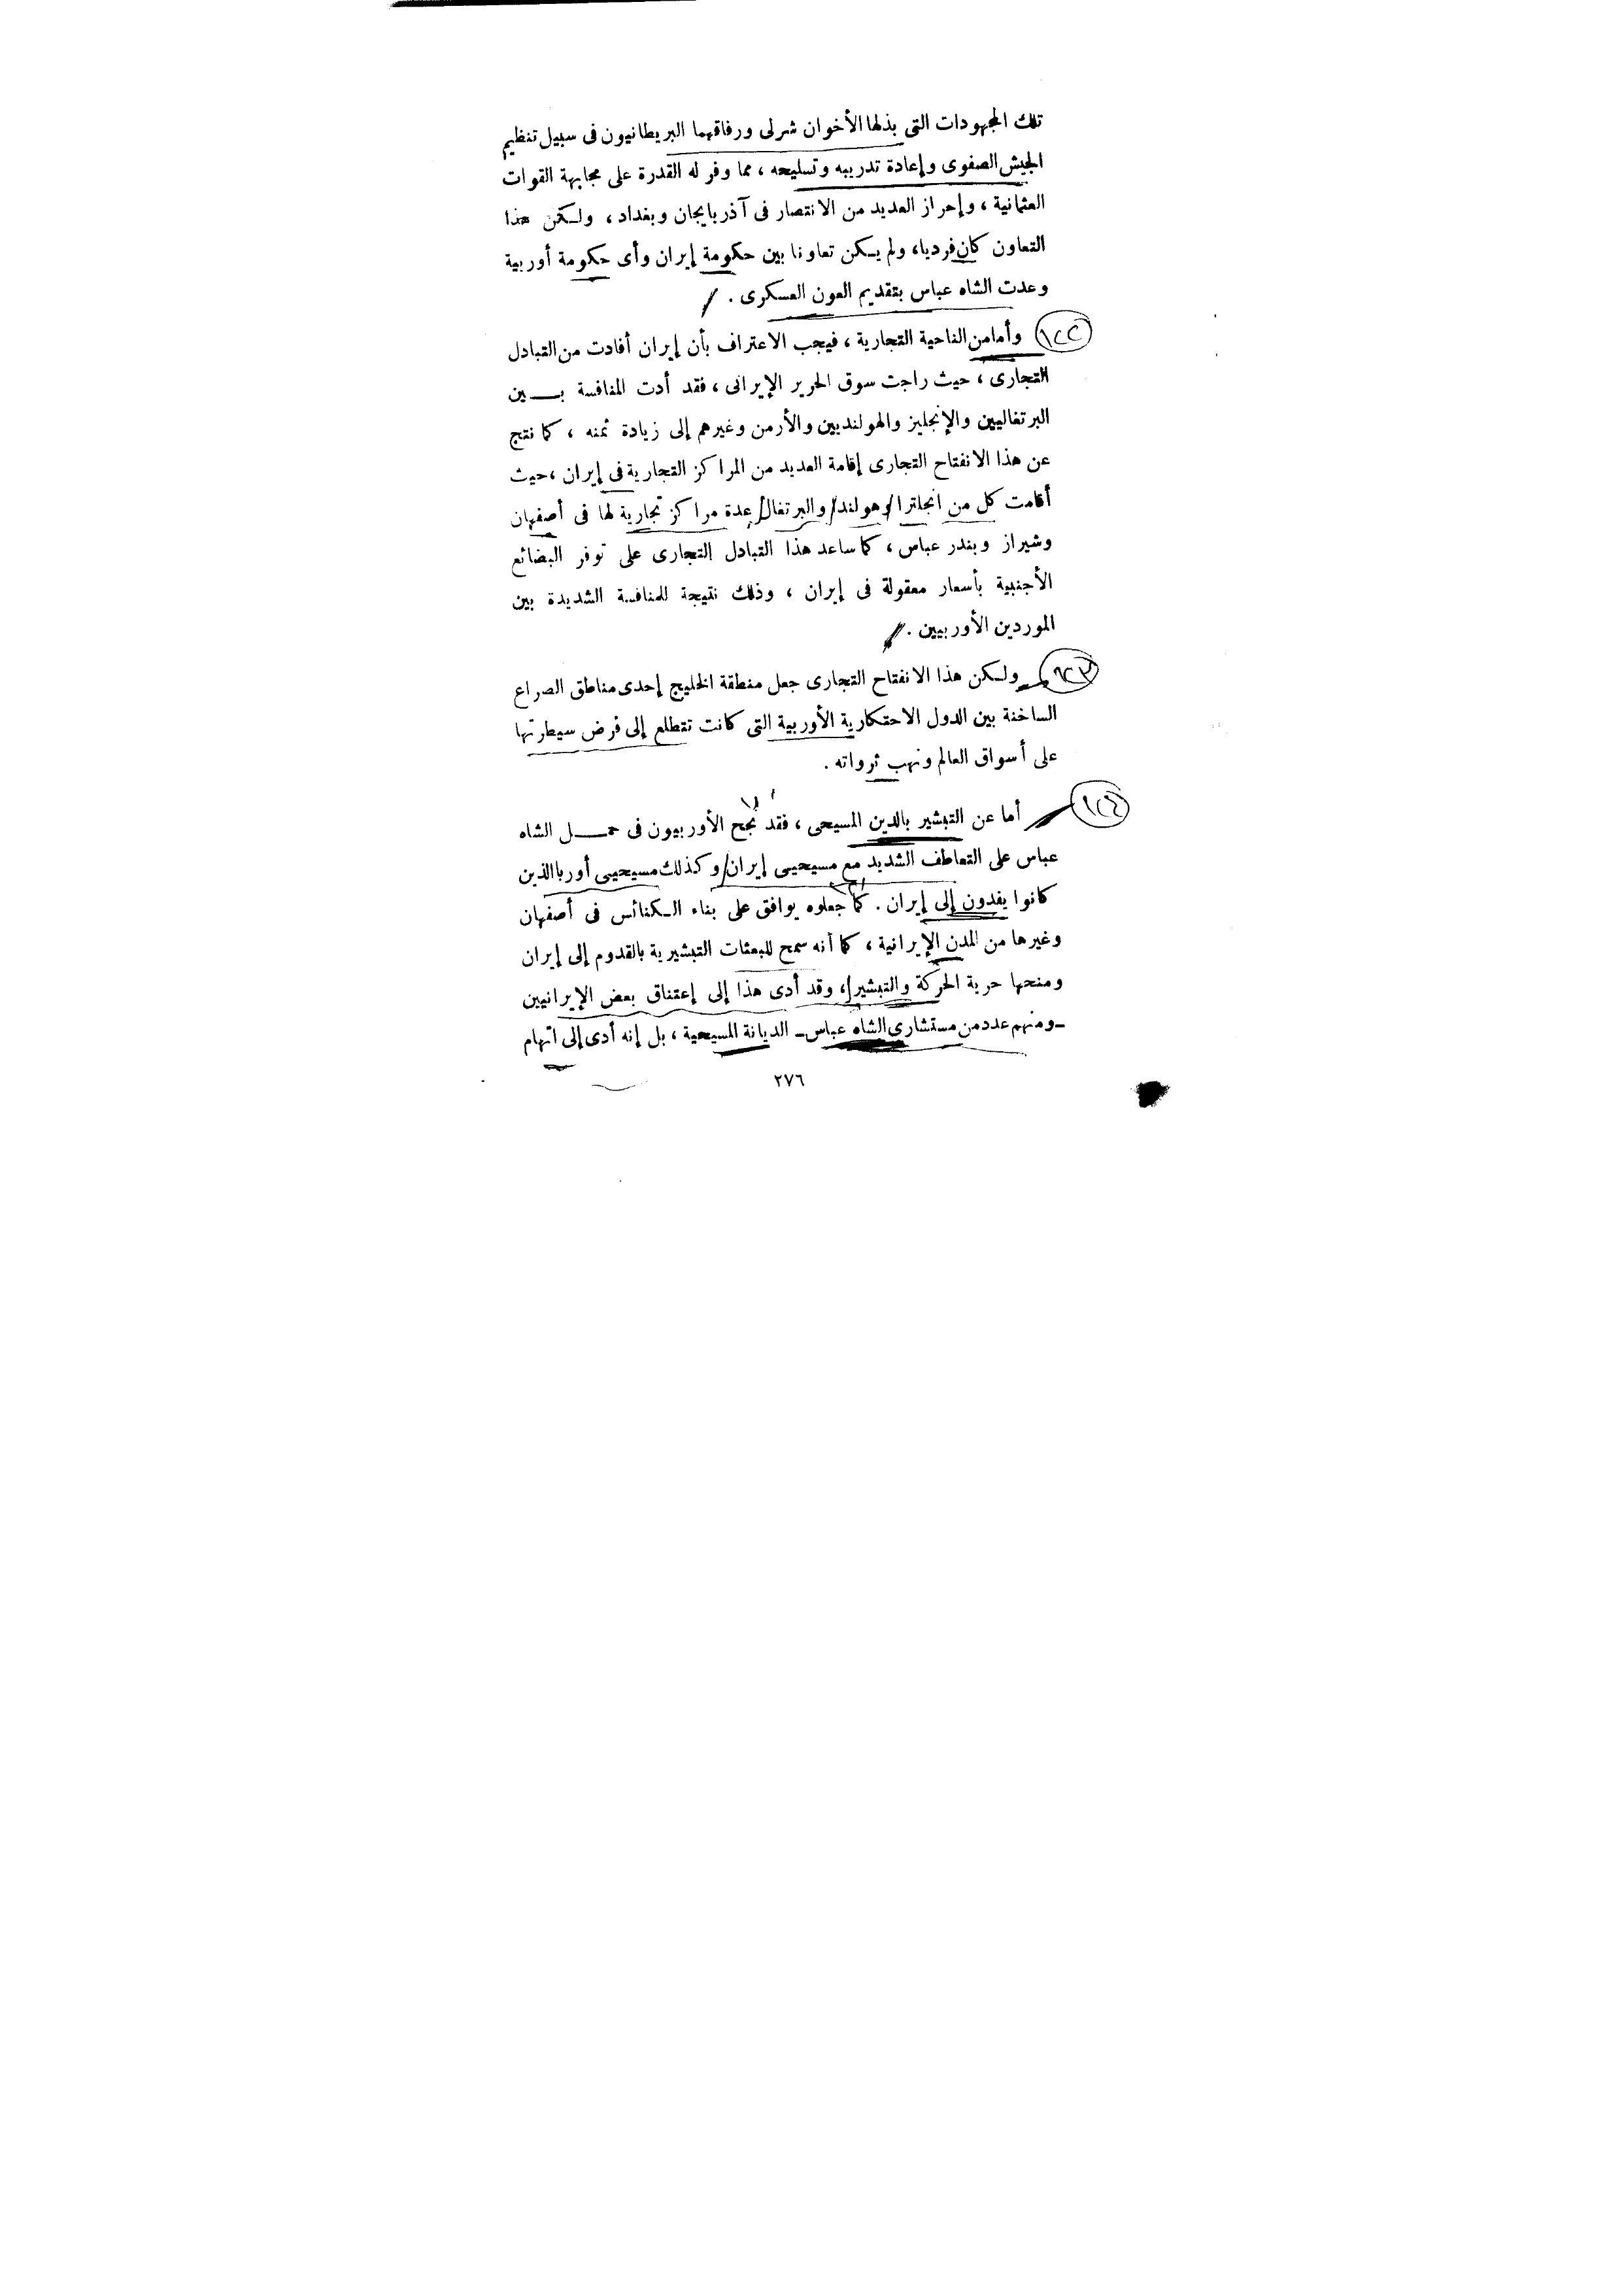 تلك المجهودات التى بذلها الأخوان شرلى ورفاقهما البريطانيون فى سبيل تنظيم
الجيش الصفوى وإعادة تدريبه وتسليحه ، مما وفر له القدرة على مجابهة القوات
العثمانية ، وإحراز العديد من الانتصار فى آذربايجان وبغداد ، ولكن هذا
التعاون كان فرديا، ولم يكن تعاونا بين حكومة إيران وأى حكومة أوربية
وعدت الشاه عباس بتقديم العون العسكرى .
١٢٢ وأما من الناحية التجارية ، فيجب الاعتراف بأن إيران أفادت من التبادل
التجارى ، حيث راجت سوق الحرير الإيرانى ، فقد أدت المنافسة بـــين
البرتغاليين والإنجليز والهولنديين والأرمن وغيرهم إلى زيادة ثمنه ، كما نتج
عن هذا الانفتاح التجارى إقامة العديد من المراكز التجارية فى إيران ، حيث
أقامت كل من انجلترا / وهولندا / والبرتغال / عدة مراكز تجارية لها فى أصفهان
وشيراز وبندر عباس ، كما ساعد هذا التبادل التجارى على توفر البضائع
الأجنبية بأسعار معقولة فى إيران ، وذلك نتيجة للمنافسة الشديدة بين
الموردين الأوربيين .
١٢٣ ولكن هذا الانفتاح التجارى جعل منطقة الخليج إحدى مناطق الصراع
الساخنة بين الدول الاحتكارية الأوربية التى كانت تتطلع إلى فرض سيطرتها
على أسواق العالم ونهب ثرواته .
١٢٤ أما عن التبشير بالدين المسيحى ، فقد نجح الأوربيون فى حمـــل الشاه
عباس على التعاطف الشديد مع مسيحيى إيران / وكذلك مسيحيى أوربا الذين
كانوا يفدون إلى إيران . كما جعلوه يوافق على بناء الكنائس فى أصفهان
وغيرها من المدن الإيرانية ، كما أنه سمح للبعثات التبشيرية بالقدوم إلى إيران
ومنحها حرية الحركة والتبشير /، وقد أدى هذا إلى إعتناق بعض الإيرانيين
ـ ومنهم عدد من مستشارى الشاه عباس ـ الديانة المسيحية ، بل إنه أدى إلى اتهام
٢٧٦